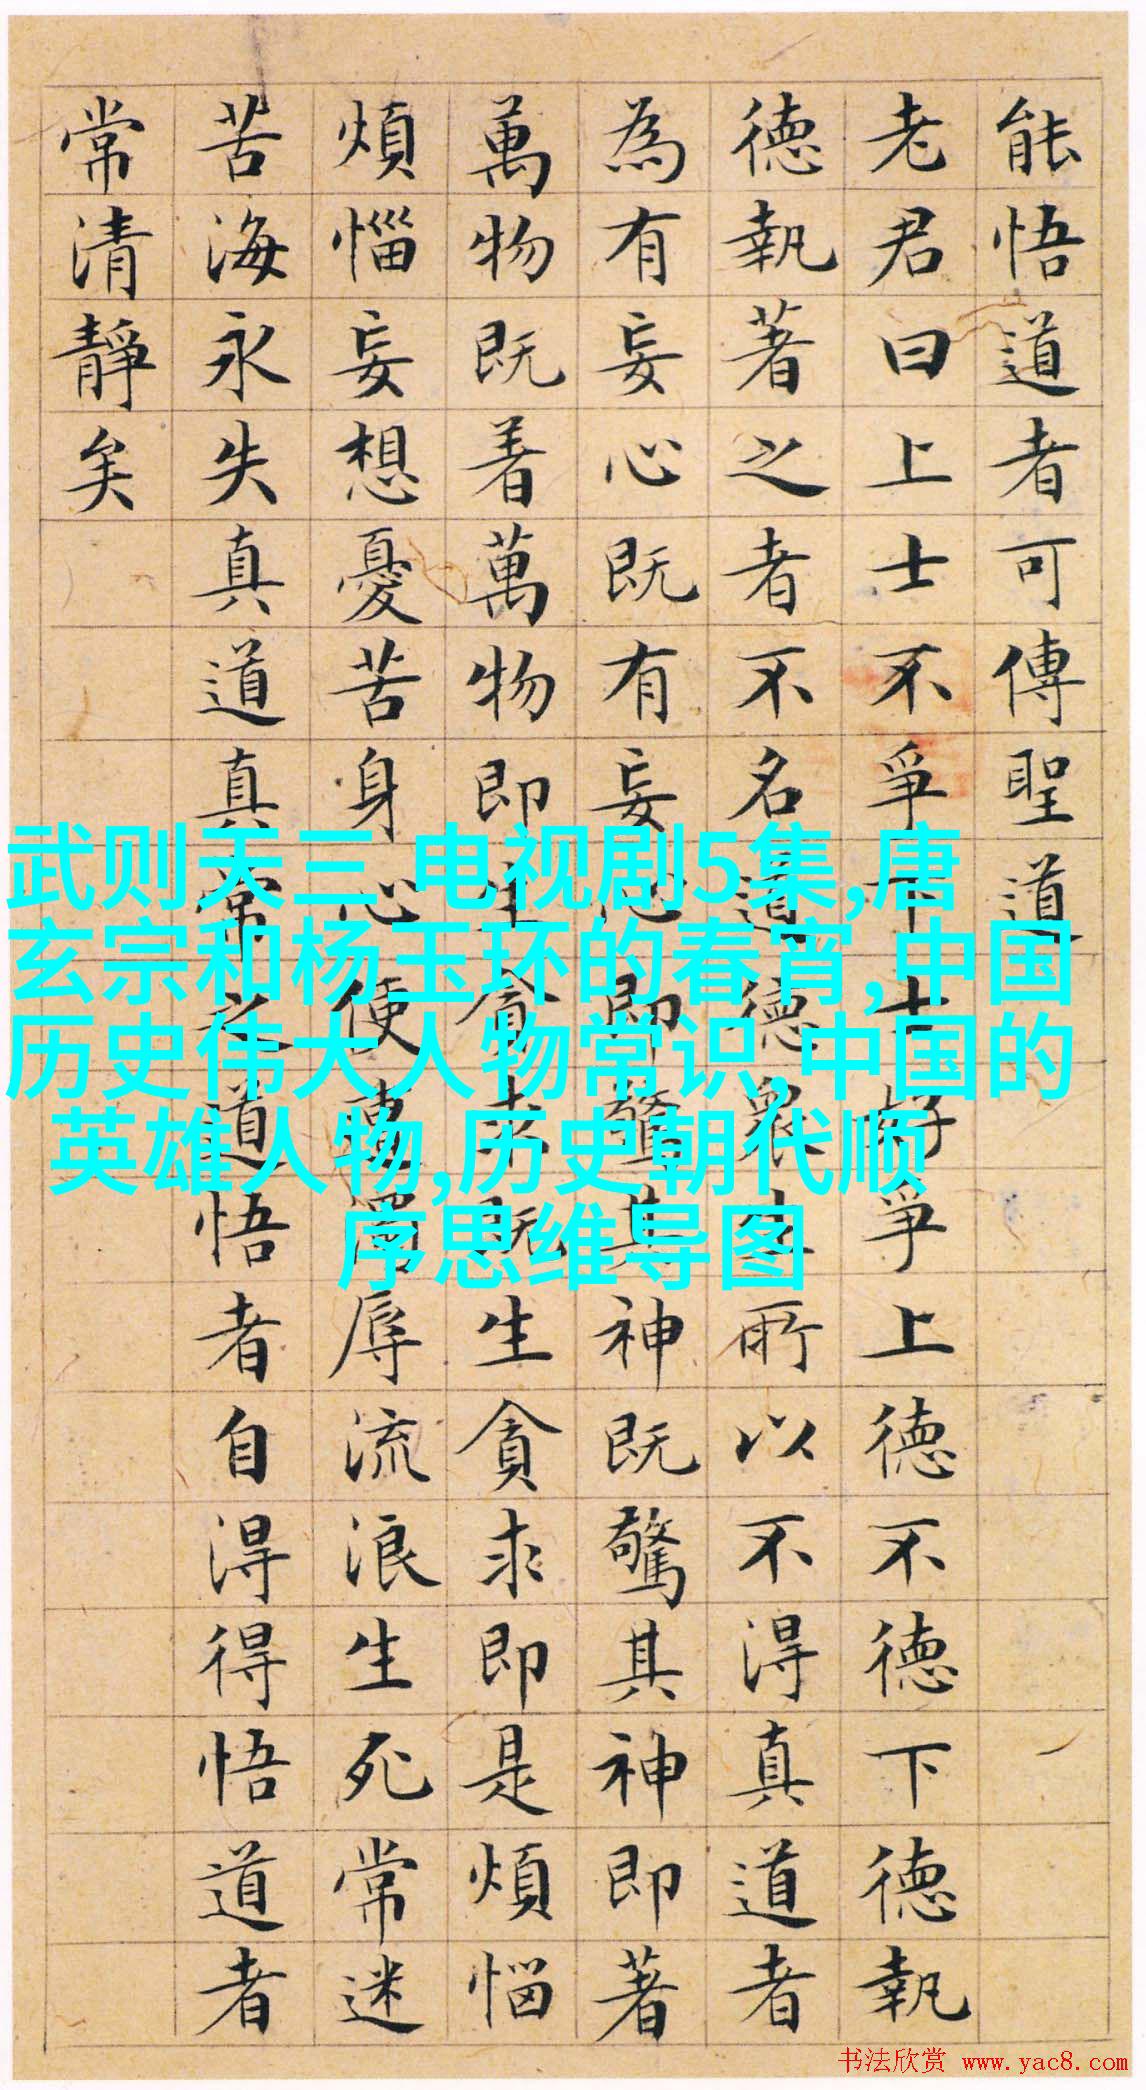 能悟道者可傳聖道
老君曰上士不爭下士好爭上德不德下德執
德執著之者不名道德衆生所以不得真道者
為有妄心既有妄心即驚其神既驚其神即著
萬物既着萬物即生貪求既生貪求即是煩惱
煩惱妄想憂苦身心便遭濁辱流浪生死常迷
苦海永失真道真常之道悟者自得得悟道者
常清靜矣
武则天三 电视剧5集,唐
玄宗和杨玉环的春宵,中国
历史伟大人物常识,中国的
英雄人物,历史朝代顺
序思维导图
书法欣赏 www.yac8.com